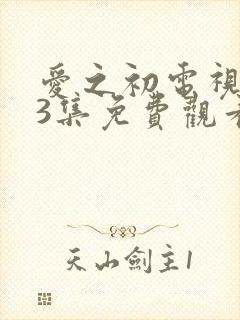 愛之初電視
3集免費觀看
天山劍主1